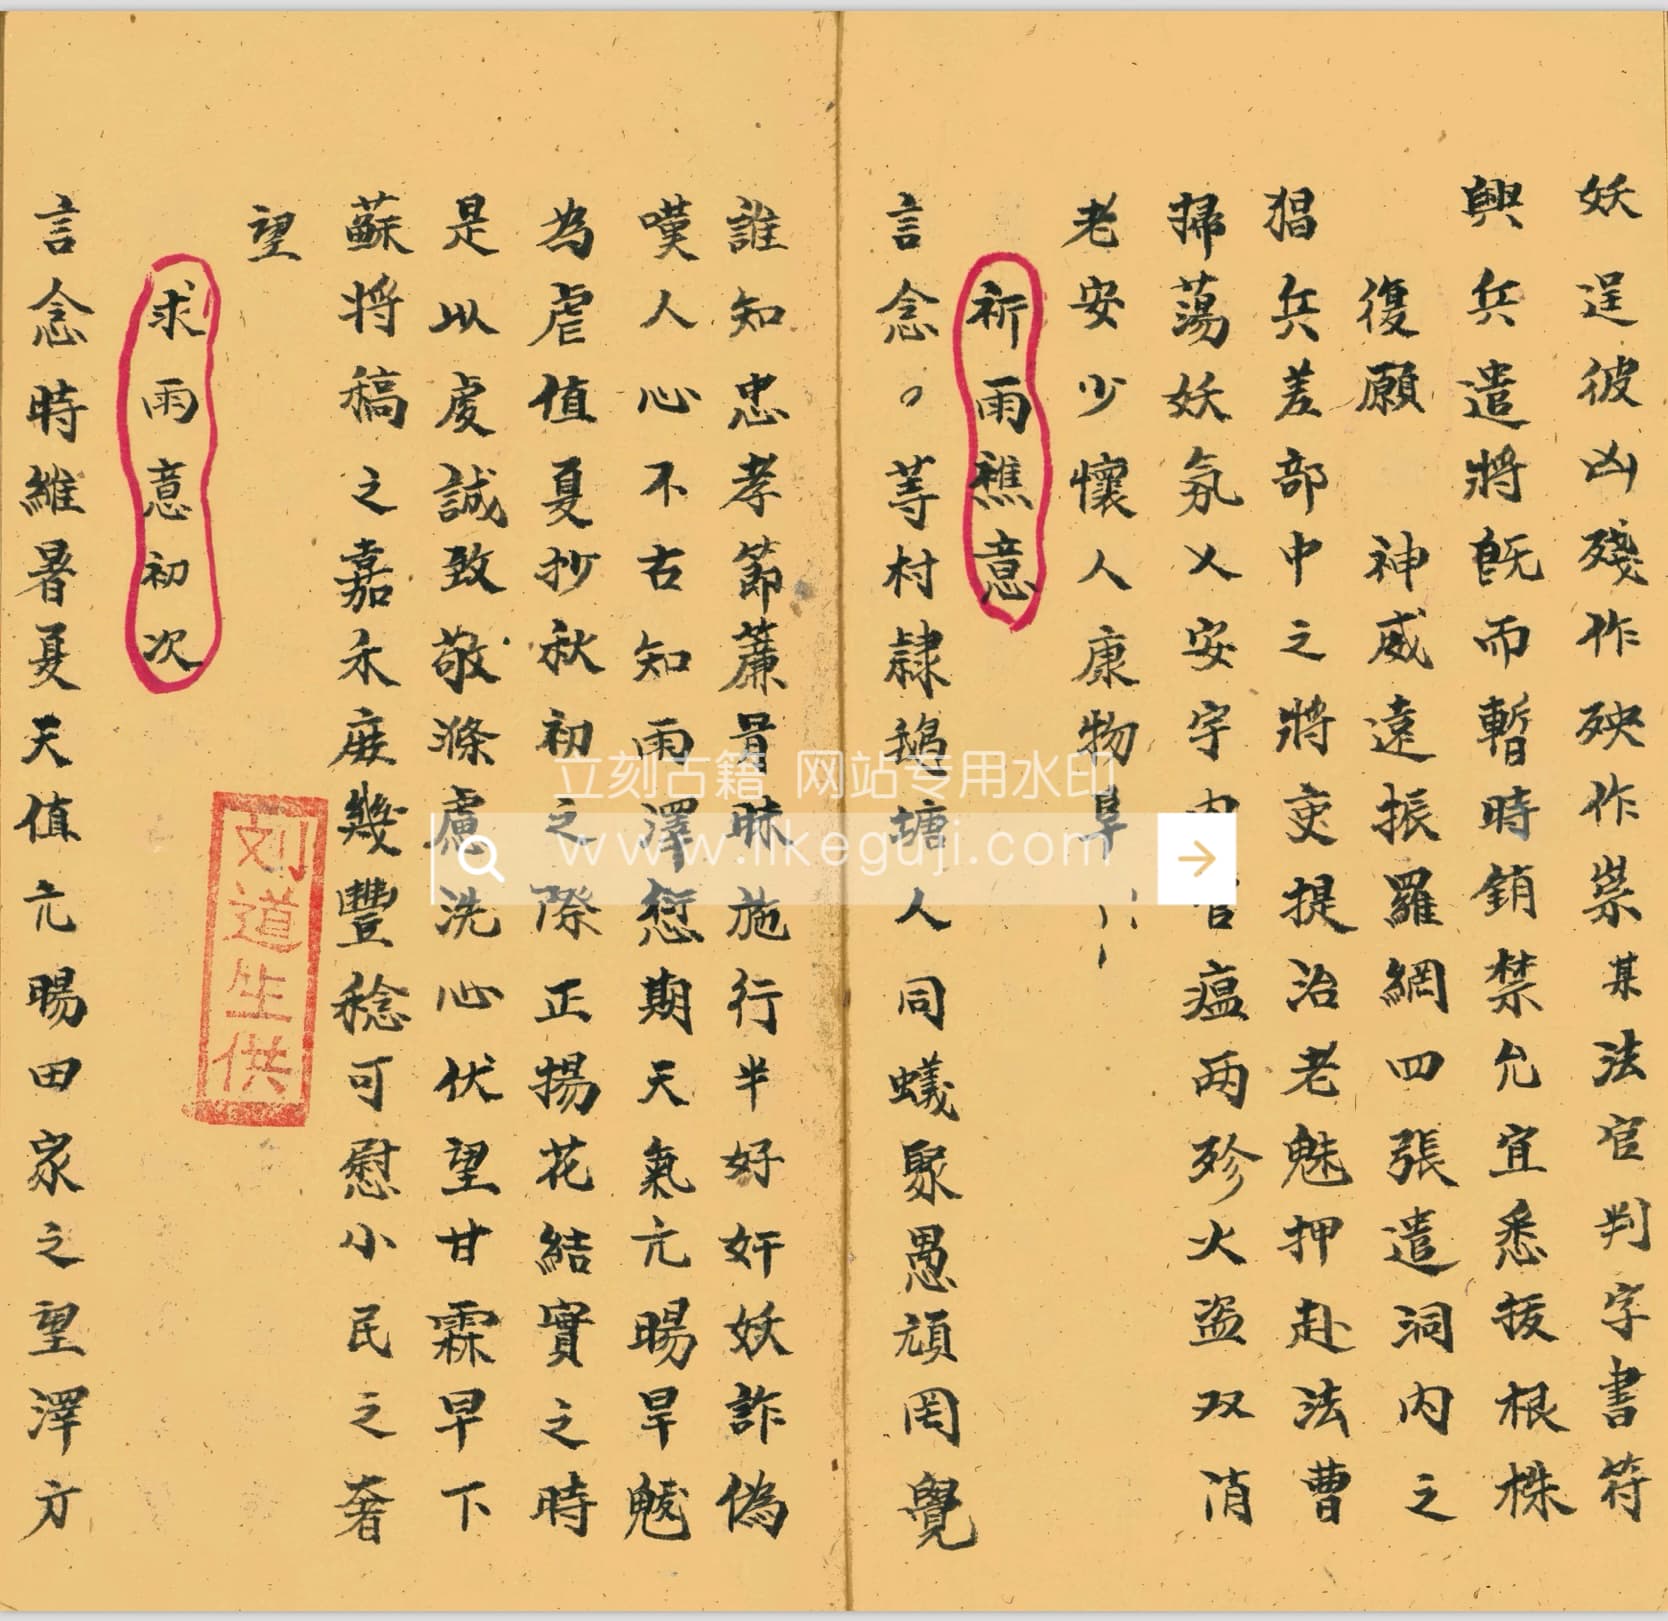 妖逞彼凶殘作殃作祟某法官判字書符
興兵遣將既而暫時銷禁允宜悉拔根株
復願 神威遠振羅網四張遣洞內之
猖兵差部中之將吏提治老魅押赴法曹
掃蕩妖氛乂安宇內 瘟兩殄火盗双消
老安少懷人康物阜
祈雨醮意
言念 等村隷 塘人同蟻聚愚頑罔覺
誰知忠孝節蔗 昧施行半好奸妖詐偽
嘆人心不古知雨澤愆期天氣亢暘旱魃
為虐值夏抄秋初之際正揚花結實之時
是以虔誠致敬滌慮洗心伏望甘霖早下
蘇将稿之嘉禾庶幾豐稔可慰小民之奢
望
刘道生供
求雨意初次
言念時維暑夏天值亢暘田家之望澤方
立刻古籍 网站专用水印
www.likeguji.com